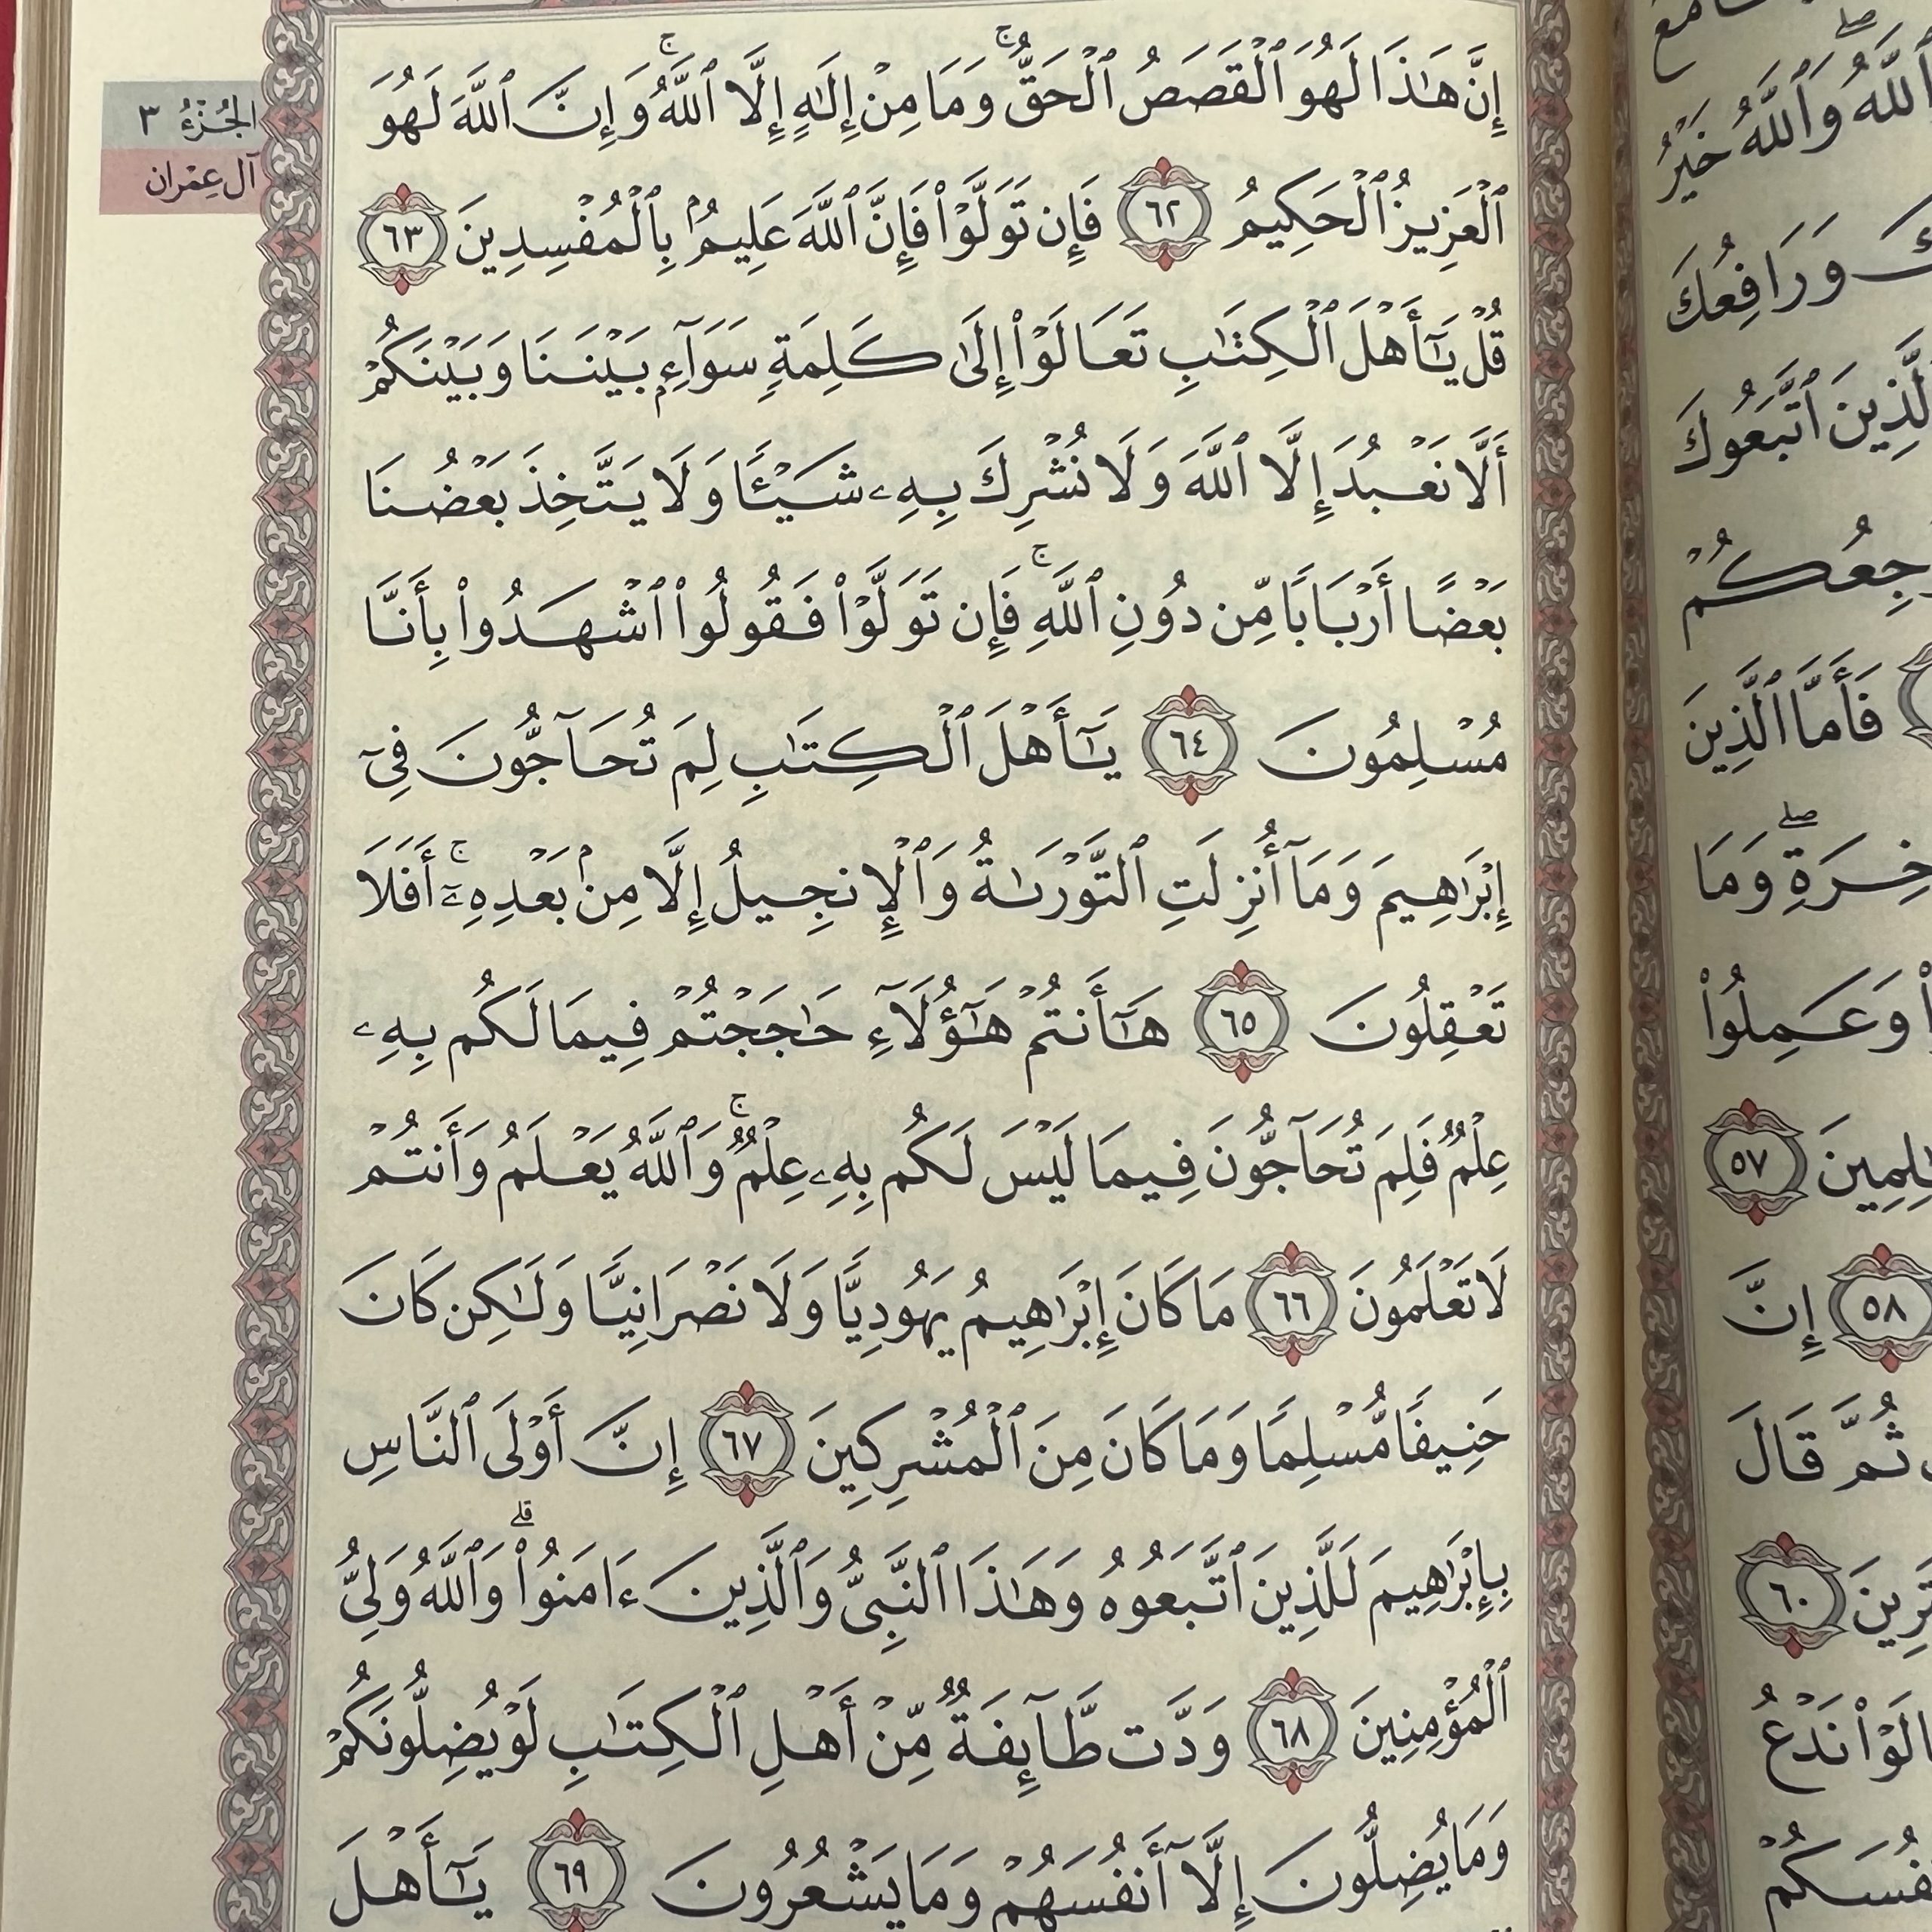 إِنَّ هَٰذَا لَهُوَ ٱلْقَصَصُ ٱلْحَقُّ ۚ وَمَا مِنْ إِلَٰهٍ إِلَّا ٱللَّهُ ۚ وَإِنَّ ٱللَّهَ لَهُوَ
ٱلْعَزِيزُ ٱلْحَكِيمُ ٦٢ فَإِن تَوَلَّوْا۟ فَإِنَّ ٱللَّهَ عَلِيمٌۢ بِٱلْمُفْسِدِينَ ٦٣
قُلْ يَٰٓأَهْلَ ٱلْكِتَٰبِ تَعَالَوْا۟ إِلَىٰ كَلِمَةٍ سَوَآءٍۭ بَيْنَنَا وَبَيْنَكُمْ
أَلَّا نَعْبُدَ إِلَّا ٱللَّهَ وَلَا نُشْرِكَ بِهِۦ شَيْـًٔا وَلَا يَتَّخِذَ بَعْضُنَا
بَعْضًا أَرْبَابًا مِّن دُونِ ٱللَّهِ ۚ فَإِن تَوَلَّوْا۟ فَقُولُوا۟ ٱشْهَدُوا۟ بِأَنَّا
مُسْلِمُونَ ٦٤ يَٰٓأَهْلَ ٱلْكِتَٰبِ لِمَ تُحَآجُّونَ فِىٓ
إِبْرَٰهِيمَ وَمَآ أُنزِلَتِ ٱلتَّوْرَىٰةُ وَٱلْإِنجِيلُ إِلَّا مِنۢ بَعْدِهِۦٓ ۚ أَفَلَا
تَعْقِلُونَ ٦٥ هَٰٓأَنتُمْ هَٰٓؤُلَآءِ حَٰجَجْتُمْ فِيمَا لَكُم بِهِۦ
عِلْمٌ فَلِمَ تُحَآجُّونَ فِيمَا لَيْسَ لَكُم بِهِۦ عِلْمٌ ۚ وَٱللَّهُ يَعْلَمُ وَأَنتُمْ
لَا تَعْلَمُونَ ٦٦ مَا كَانَ إِبْرَٰهِيمُ يَهُودِيًّا وَلَا نَصْرَانِيًّا وَلَٰكِن كَانَ
حَنِيفًا مُّسْلِمًا وَمَا كَانَ مِنَ ٱلْمُشْرِكِينَ ٦٧ إِنَّ أَوْلَى ٱلنَّاسِ
بِإِبْرَٰهِيمَ لَلَّذِينَ ٱتَّبَعُوهُ وَهَٰذَا ٱلنَّبِىُّ وَٱلَّذِينَ ءَامَنُوا۟ ۗ وَٱللَّهُ وَلِىُّ
ٱلْمُؤْمِنِينَ ٦٨ وَدَّت طَّآئِفَةٌ مِّنْ أَهْلِ ٱلْكِتَٰبِ لَوْ يُضِلُّونَكُمْ
وَمَا يُضِلُّونَ إِلَّآ أَنفُسَهُمْ وَمَا يَشْعُرُونَ ٦٩ يَٰٓأَهْلَ
الجُزْءُ ٣
آل عِمْران
ٱللَّهُ ۖ وَٱللَّهُ خَيْرُ
وَرَافِعُكَ
ٱتَّبَعُوكَ
فَأَمَّا ٱلَّذِينَ
وَمَا
وَعَمِلُوا۟
٥٧
٥٨ إِنَّ
ثُمَّ قَالَ
٦٠
نَدْعُ